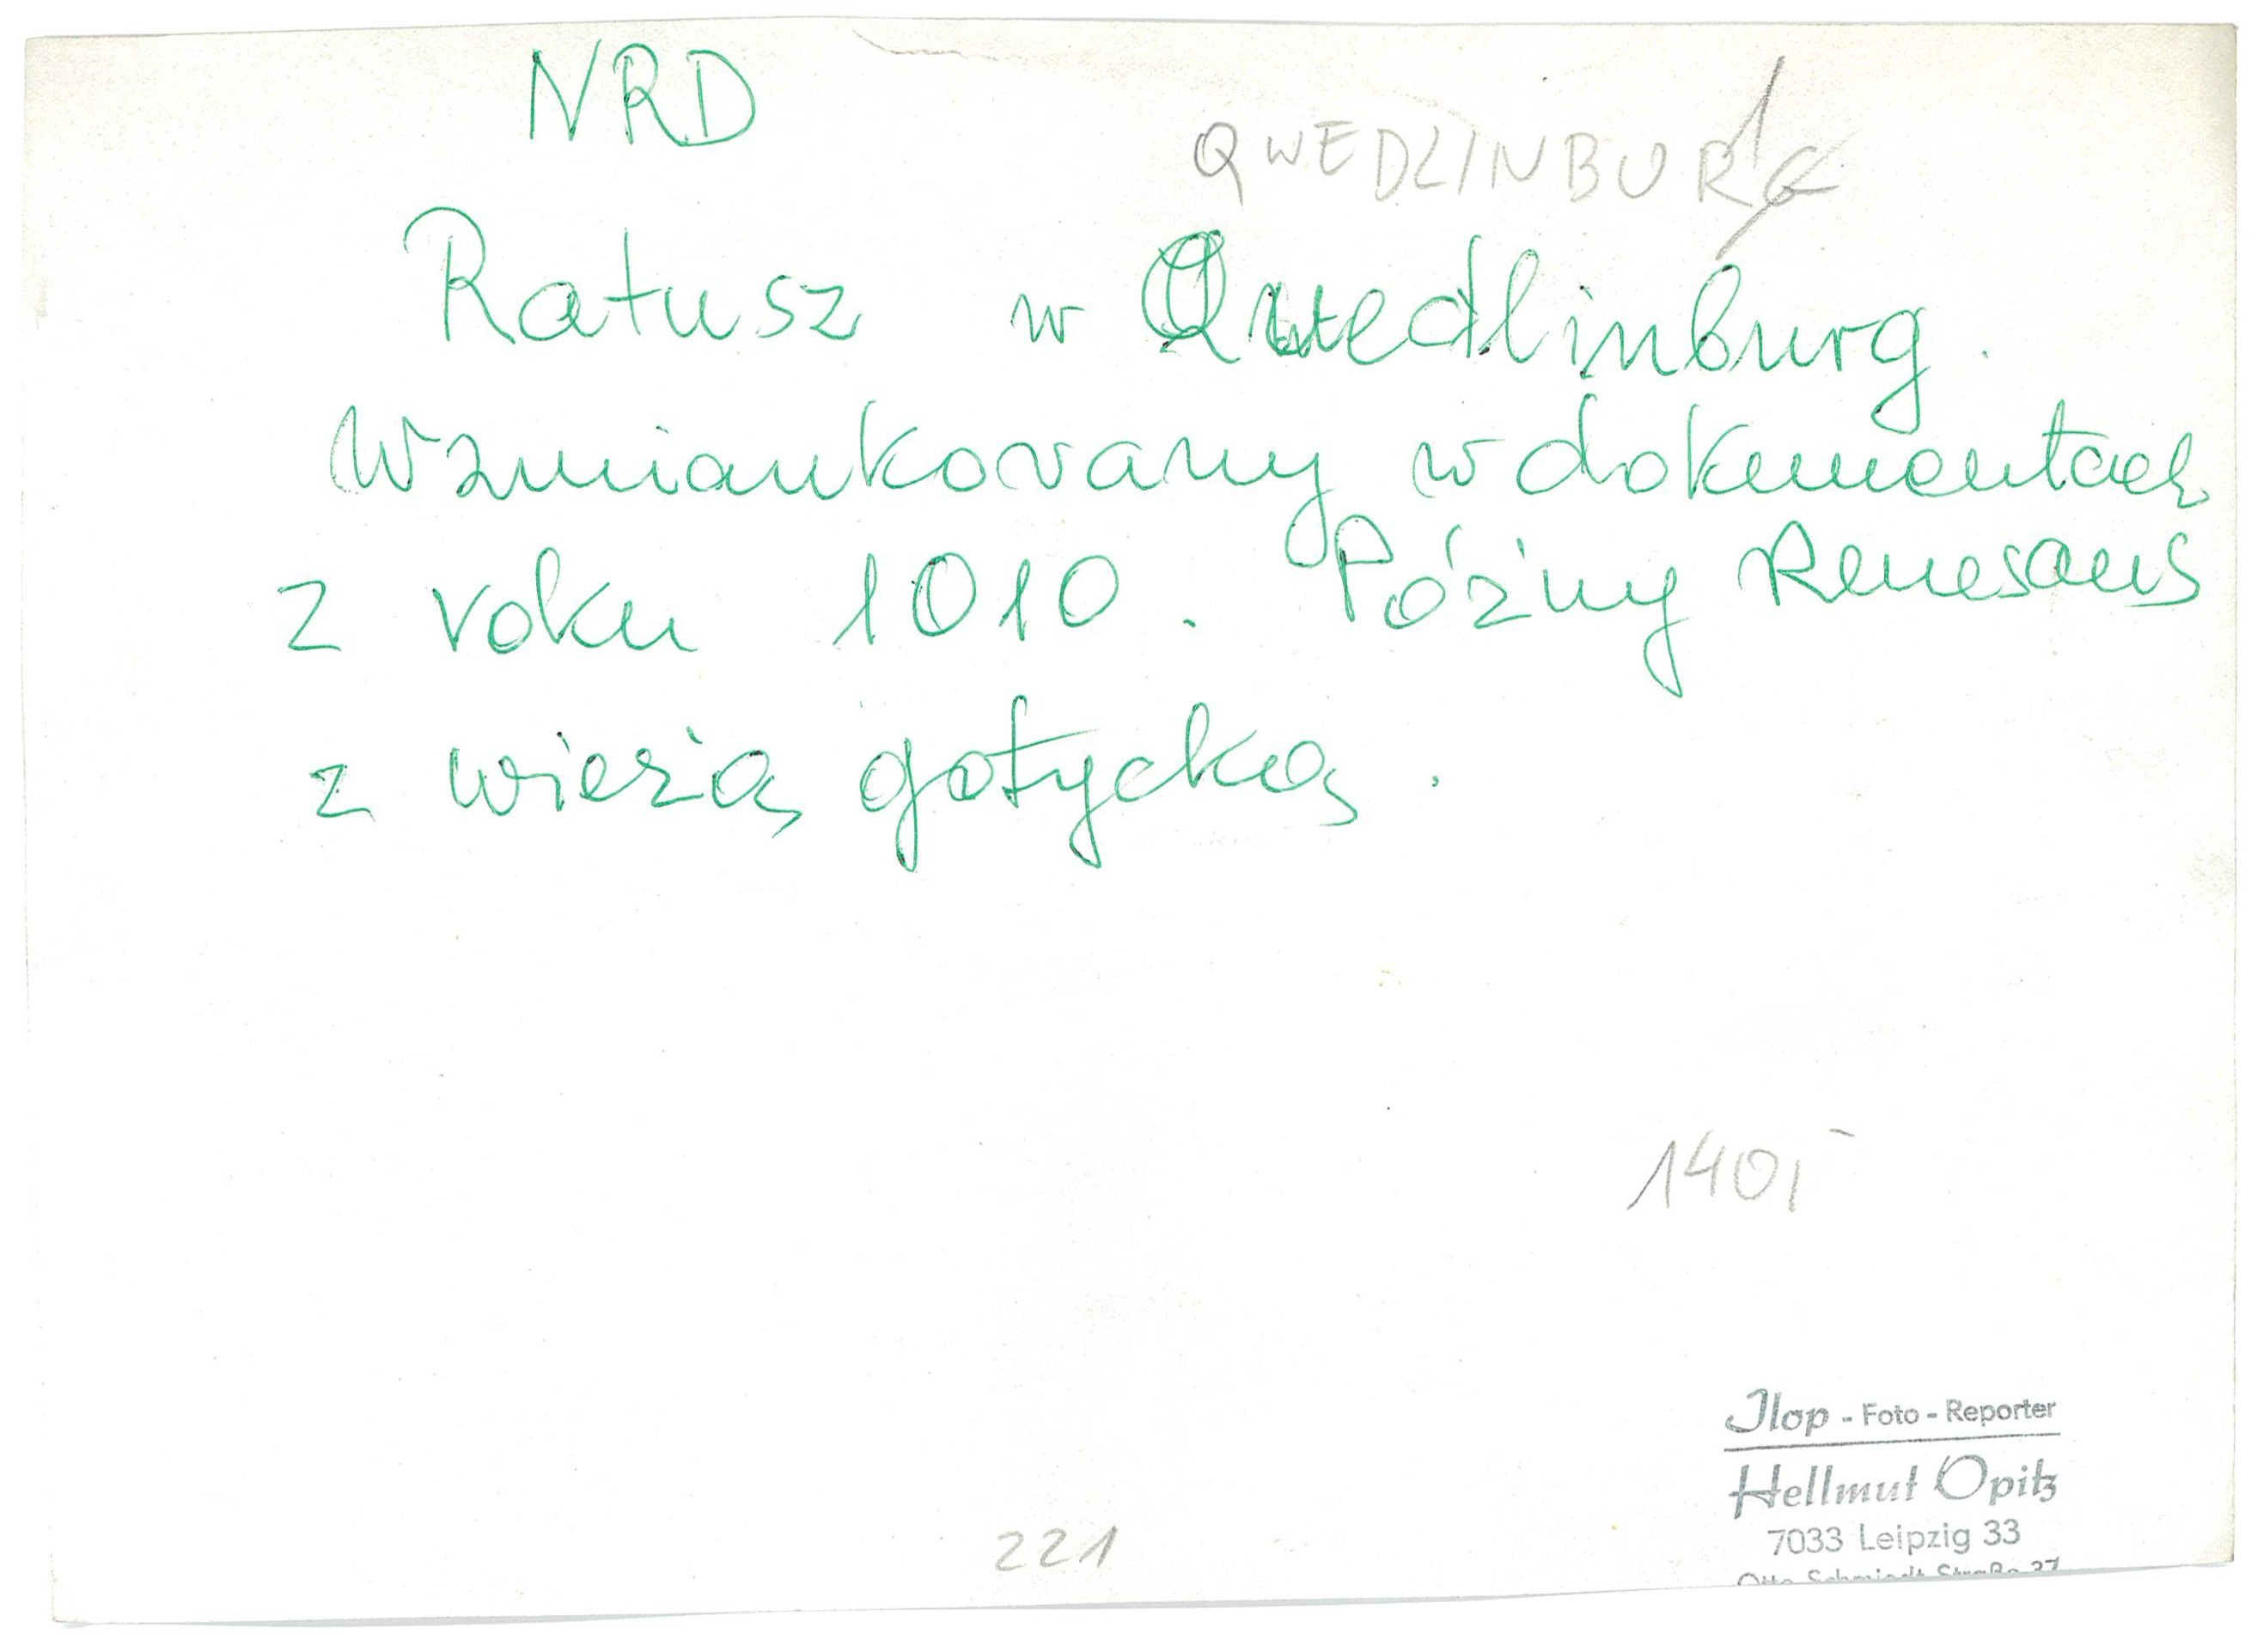 NRD
QWEDLINBURG
Ratusz w Quedlinburg.
Wzmiankowany w dokumentach
z roku 1010. Późny Renesans
z wieżą gotycką.
140,-
Ilop - Foto - Reporter
Hellmut Opitz
7033 Leipzig 33
Otto Schmiedt Straße 37
221